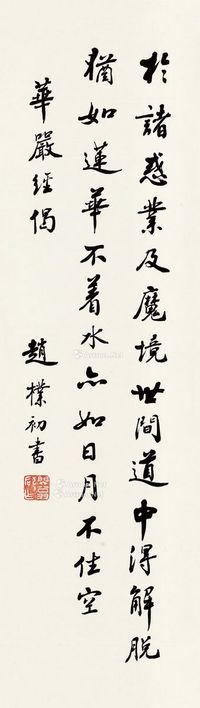 於諸惑業及魔境世間道中得解脫
猶如蓮華不着水亦如日月不住空
華嚴經偈
趙樸初書